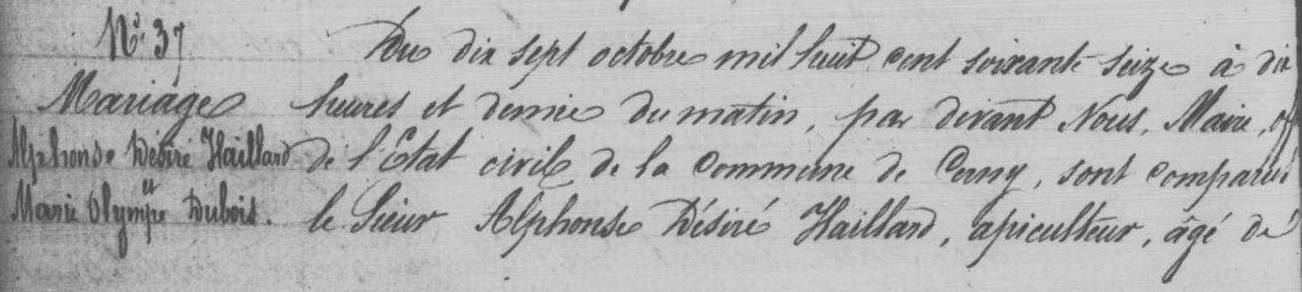 N° 37
Mariage
Alphonse Désiré Haillard
et
Marie Olympe Dubois.
Du dix sept octobre mil huit cent soixante seize à dix
heures et demie du matin, par devant Nous, Maire, off
de l'Etat civil de la commune de Cerny, sont comparus
le Sieur Alphonse Désiré Haillard, apiculteur, âgé de